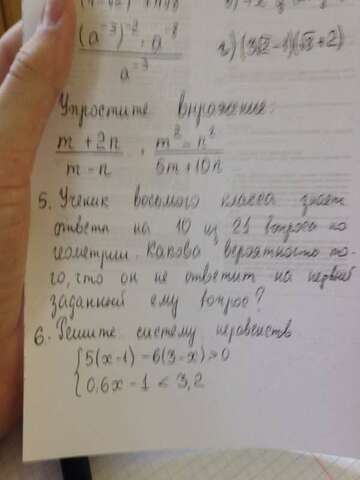 (a⁻³)⁻² · a⁻⁸
a⁻³
г) (3√2 − 1)(√3 + 2)
Упростите выражение:
m + 2n / m − n · m² − n² / 5m + 10n
5. Ученик восьмого класса знает
ответы на 10 из 21 вопроса по
геометрии. Какова вероятность то-
го, что он не ответит на первый
заданный ему вопрос?
6. Решите систему неравенств
5(x−1) − 6(3−x) > 0
0,6x − 1 ≤ 3,2